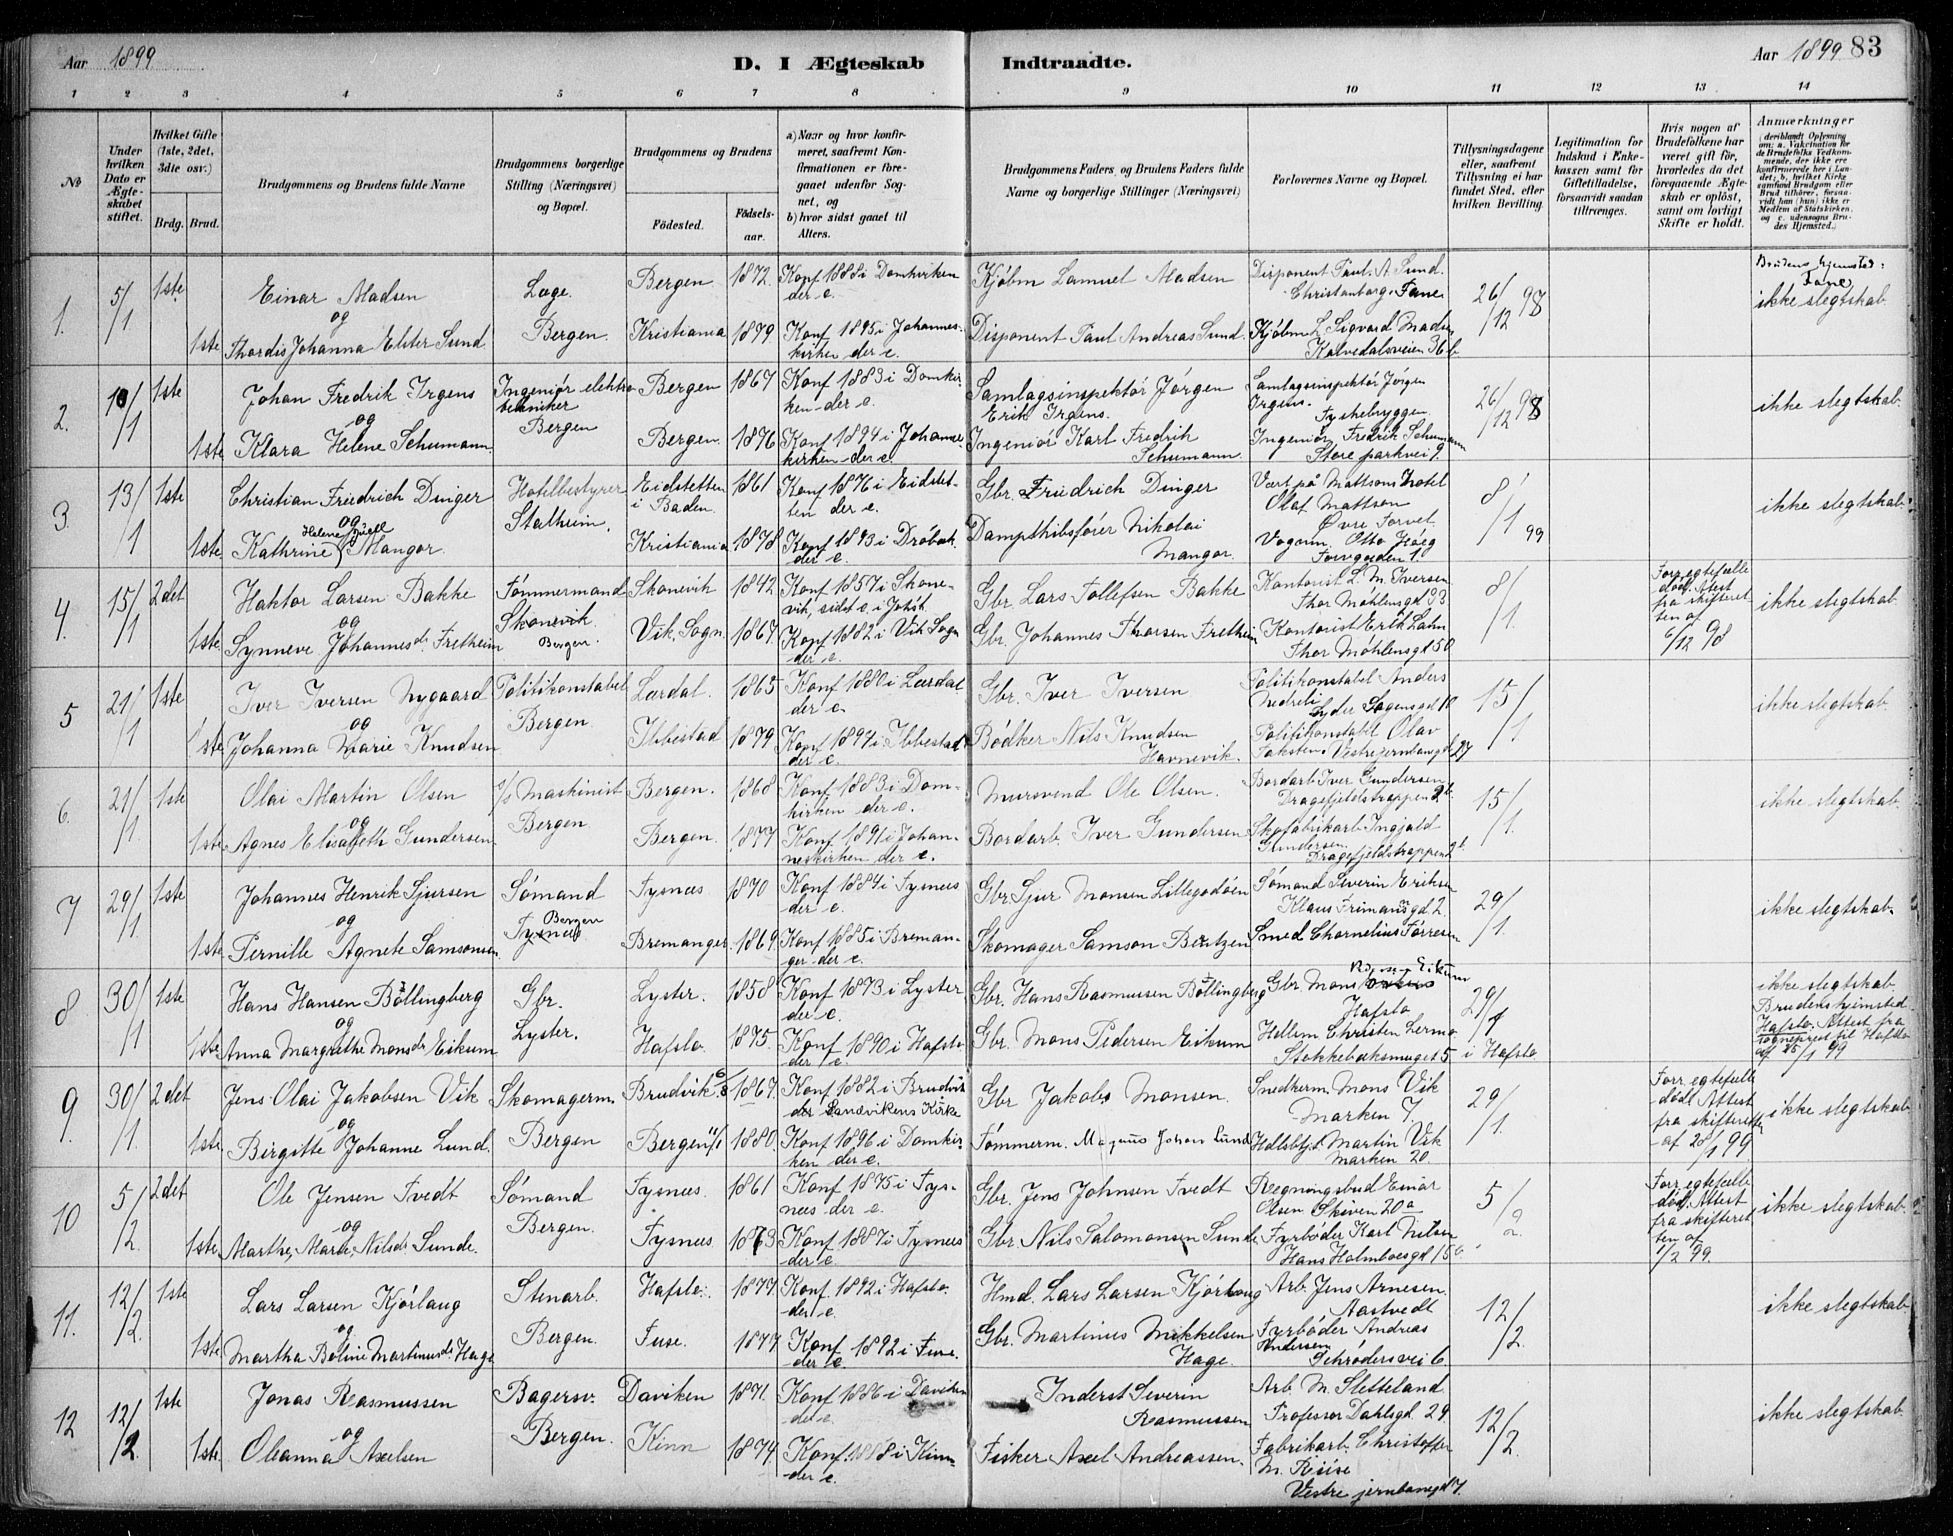 Aar 1899
D. I Ægteskab Indtraadte.
Aar 1899 83
1 2 3 4 5 6 7 8 9 10 11 12 13 14
No
Under hvilken Dato er Ægteskabet stiftet.
Hvilket Gifte (1ste, 2det, 3die osv.)
Brdg. Brud.
Brudgommens og Brudens fulde Navne
Brudgommens borgerlige Stilling (Næringsvei) og Bopæl.
Brudgommens og Brudens
Fødested. Fødselsaar.
a) Naar og hvor konfirmeret, saafremt Konfirmationen er foregaaet udenfor Sognet, og
b) hvor sidst gaaet til Alters.
Brudgommens Faders, og Brudens Faders fulde Navne og borgerlige Stillinger (Næringsvei)
Forlovernes Navne og Bopæl.
Tillysningsdagene eller, saafremt Tillysning ei har fundet Sted, efter hvilken Bevilling.
Legitimation for Indskud i Enkekassen samt for Giftetilladelse, forsaavidt saadan tiltrænges.
Hvis nogen af Brudefolkene har været gift før, hvorledes da det foregaaende Ægteskab er opløst, samt om lovligt Skifte er holdt.
Anmærkninger
(deriblandt Oplysning om: a. Vakcination for de Brudefolks Vedkommende, der ikke ere konfirmerede her i Landet; b, hvilket Kirkesamfund Brudgom eller Brud tilhører, forsaavidt han (hun) ikke er Medlem af Statskirken, og c. udensogns Brudes Hjemsted.)
1. 5/1 1ste Einar Madsen Læge. Bergen 1872. Konf 1888 i Domkirken der e. Kjøbm Samuel Madsen Disponent Paul A Sund. Christanborg. Fane 26/12 98 Brudens hjemsted: Fane, ikke slegtskab
og
1ste Thordis Johanna Elster Sund Bergen. Kristiania 1879. Konf 1895 i Johanneskirken der e. Disponent Paul Andreas Sund. Kjøbm L. Sigvard Madsen Kalvedalsveien 36b
2. 10/1 1ste Johan Fredrik Irgens Ingeniør elektrotekniker Bergen 1867 Konf 1883 i Domkirken der e. Samlagsinspektør Jørgen Erik Irgens. Samlagsinspektør Jørgen Irgens. Tyskebryggen 26/12 98 ikke slegtskab.
og
1ste Klara Helene Schumann Bergen Bergen. 1876 Konf 1894 i Johanneskirken der e. Ingeniør Karl Fredrik Schumann. Ingeniør Fredrik Schumann Store parkvei 9.
3. 13/1 1ste Christian Friedrich Dinger Hotelbestyrer Eidstetten i Baden. 1861 Konf 1876 i Eidstetten der e. Gbr. Friedrich Dinger Vært på Mattsons Hotel Olaf Mattson Øvre Torvet. 8/1 99 ikke slegtskab.
og
1ste Kathrine Helene Juell Mangor. Stalheim. Kristiania 1878. Konf 1893 i Drøbak der e. Dampskibsfører Nikolai Mangor. Vognm. Otto Høeg Torvgaden 1.
4. 15/1 2det Haktor Larsen Bakke Tømmermand Skonevik 1842 Konf 1857 i Skonevik, sidst e. i Johsk. Gbr. Lars Tollefsen Bakke Kontorist L. M. Iversen Thor Møhlensgd 33 8/1. Forr. egtefælle død. Attest fra skifteretten af 6/12 98 ikke slegtskab.
og
1ste Synneve Johannesdr. Fretheim Skonevik Bergen. Vik, Sogn. 1867. Konf 1882 i Vik Sogn der e. Gbr. Johannes Thorsen Fretheim Kontorist Erik Lahn Thor Møhlensgd 50
5 21/1 1ste Iver Iversen Nygaard Politikonstabel Lærdal. 1865 Konf 1880 i Lærdal der e. Gbr. Iver Iversen Politikonstabel Anders Nedreli Lyder Sagensgd 10 15/1 ikke slegtskab.
og
1ste Johanna Marie Knudsen Bergen. Ibbestad 1879 Konf 1894 i Ibbestad der e. Bødker Nils Knudsen Havnevik. Politikonstabel Olav Vestre jernbanegd 27
6. 21/1. 1ste Olai Martin Olsen Maskinist Bergen. 1868 Konf 1883 i Domkirken der e. Mursvend Ole Olsen. Bordarb Iver Gundersen Dragefjeldstrappen 2b. 15/1. ikke slegtskab.
og
1ste Agnes Elisabeth Gundersen. Bergen. Bergen. 1877 Konf 1891 i Johanneskirken der e. Bordarb. Iver Gundersen Skofabrikarb Ingjald Gundersen. Dragefjeldstrappen 2b.
7 29/1. 1ste Johannes Henrik Sjursen Sømand Tysnæs 1870 Konf 1884 i Tysnæs der e. Gbr. Sjur Monsen Lillegodøen Sømand Severin Eriksen Klaus Frimansgd 2. 29/1. ikke slegtskab.
og
1ste Pernille Agnete Samsonsen. Bergen Tysnæs Bremanger. 1869. Konf 1885 i Bremanger der e. Skomager Samson Berntzen Smed Chornelius Tørresen
8 30/1 1ste Hans Hansen Bøllingberg Gbr. Lyster. 1858 Konf 1873 i Lyster der e. Gbr. Hans Rasmussen Bøllingberg Gbr Mons Pedersen Eikum Hafslo 29/1 ikke slegtskab. Brudens hjemsted Hafslo. Attest fra sogneprest til Hafslo af 25/1 99
og
1ste Anna Margrethe Monsdr Eikum Lyster. Hafslo. 1875. Konf 1890 i Hafslo der e. Gbr. Mons Pedersen Eikum Hellem Christen Lermo Stokkebæksmuget 5 i Hafslo
9. 30/1. 2det Jens Olai Jakobsen Vik Skomagerm. Brudvik 1867. Konf 1882 i Brudvik der Sandvikens Kirke Gbr Jakob Monsen. Snedkerm. Mons Vik Marken 7. 29/1. Forr. egtefælle død. Attest fra skifteretten af 20/1 99. ikke slegtskab
og
1ste Birgitte Johanne Lund. Bergen Bergen 1880. Konf 1896 i Domkirken der e. Tømmerm. Magnus Johan Lund Martin Vik Marken 20.
10 5/2. 2det Ole Jensen Tvedt Sømand Tysnæs. 1861 Konf 1875 i Tysnæs der e. Gbr. Jens Johnsen Tvedt Regningsbud Einar Olsen Skiven 20a 5/2. Forr. egtefælle død. Attest fra skifteretten af 1/2 99. ikke slegtskab.
og
1ste Marthe Marie Nilsdr. Sunde. Bergen. Tysnæs 1873 Konf 1887 i Tysnæs der e. Gbr. Nils Salomonsen Sunde Fyrbøder Karl Nilsen Hans Holmboesgd 15
11. 12/2. 1ste Lars Larsen Kjørlaug Stenarb. Hafslo. 1877. Konf. 1892 i Hafslo. der e. Hmd. Lars Larsen Kjørlaug Arb. Jens Arnesen. Aastvedt 12/2. ikke slegtskab
og
1ste Martha Boline Martinusdr. Hage Bergen. Fuse. 1877 Konf 1892 i Fuse. der e. Gbr. Martinus Mikkelsen Hage. Fyrbøder Andreas Andersen Schrødersvei 6
12 12/2. 1ste Jonas Rasmussen Bagersv. Daviken 1871. Konf. 1886 i Daviken der e. Inderst Severin Rasmussen Arb. M. Sletteland Professor Dahlsgd 29. 12/2. ikke slegtskab.
og
1ste Oleanna Axelsen Bergen. Kinn 1874. Konf. 1888 i Kinn der e. Fisker Axel Andreassen. Fabrikarb. Christoffer M. Riise Vestre jernbanegd 7.